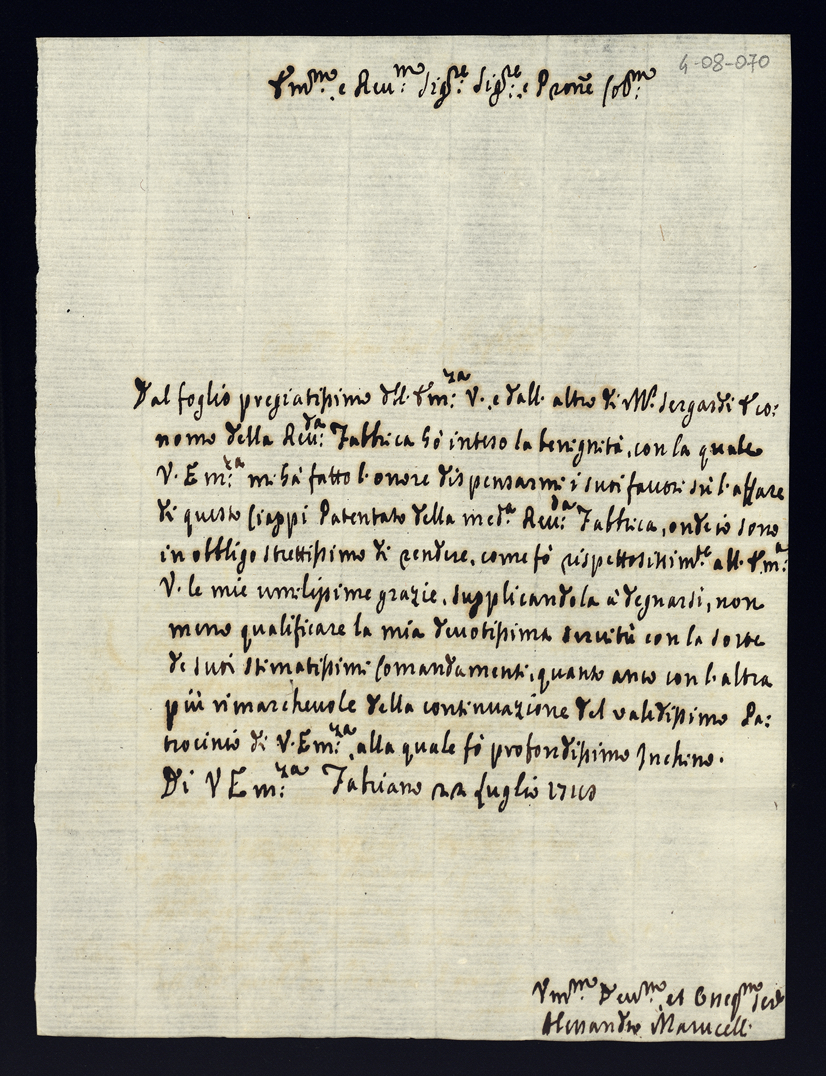 4-08-070
Em.mo e Reu.mo Sig.re Sig.re e Prone Col.mo
Dal foglio pregiatissimo dell' Em:za V. e dall' altro di M.r Sergardi Eco:
nomo della Reu:da Fabbrica hò inteso la benignità, con la quale
V. Em:za mi hà fatto l' onore dispensarmi i suoi fauori sù l' affare
di questo Ciappi Patentato della med.a Reu:da Fabbrica, onde io sono
in obbligo strettissimo di rendere, come fò rispettosissim.te all' Em:a
V. le mie umilissime grazie, supplicandola à degnarsi, non
meno qualificare la mia deuotissima seruitù con la sorte
de suoi stimatissimi Comandamenti, quanto anco con l' altra
più rimarcheuole della continuazione del validissimo Pa:
trocinio di V. Em:za, alla quale fò profondissimo Inchino.
Di V Em:za Fabriano 22 Luglio
Um.mo Deu.mo et Obseq.mo Ser
Alessandro Marucelli